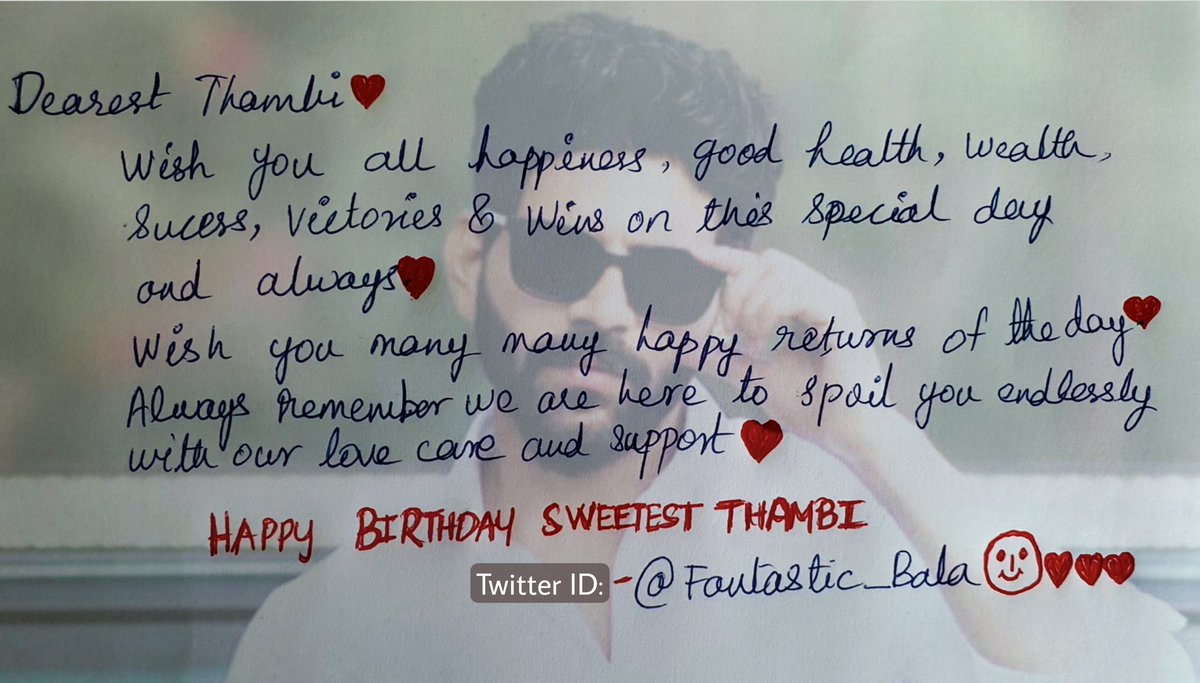 Dearest Thambi♥
Wish you all happiness, good health, wealth,
Sucess, Victories & Wins on this special day
and always♥
Wish you many many happy returns of the day♥
Always remember we are here to spoil you endlessly
with our love care and support♥
HAPPY BIRTHDAY SWEETEST THAMBI
Twitter ID: -@Fantastic_Bala☺♥♥♥